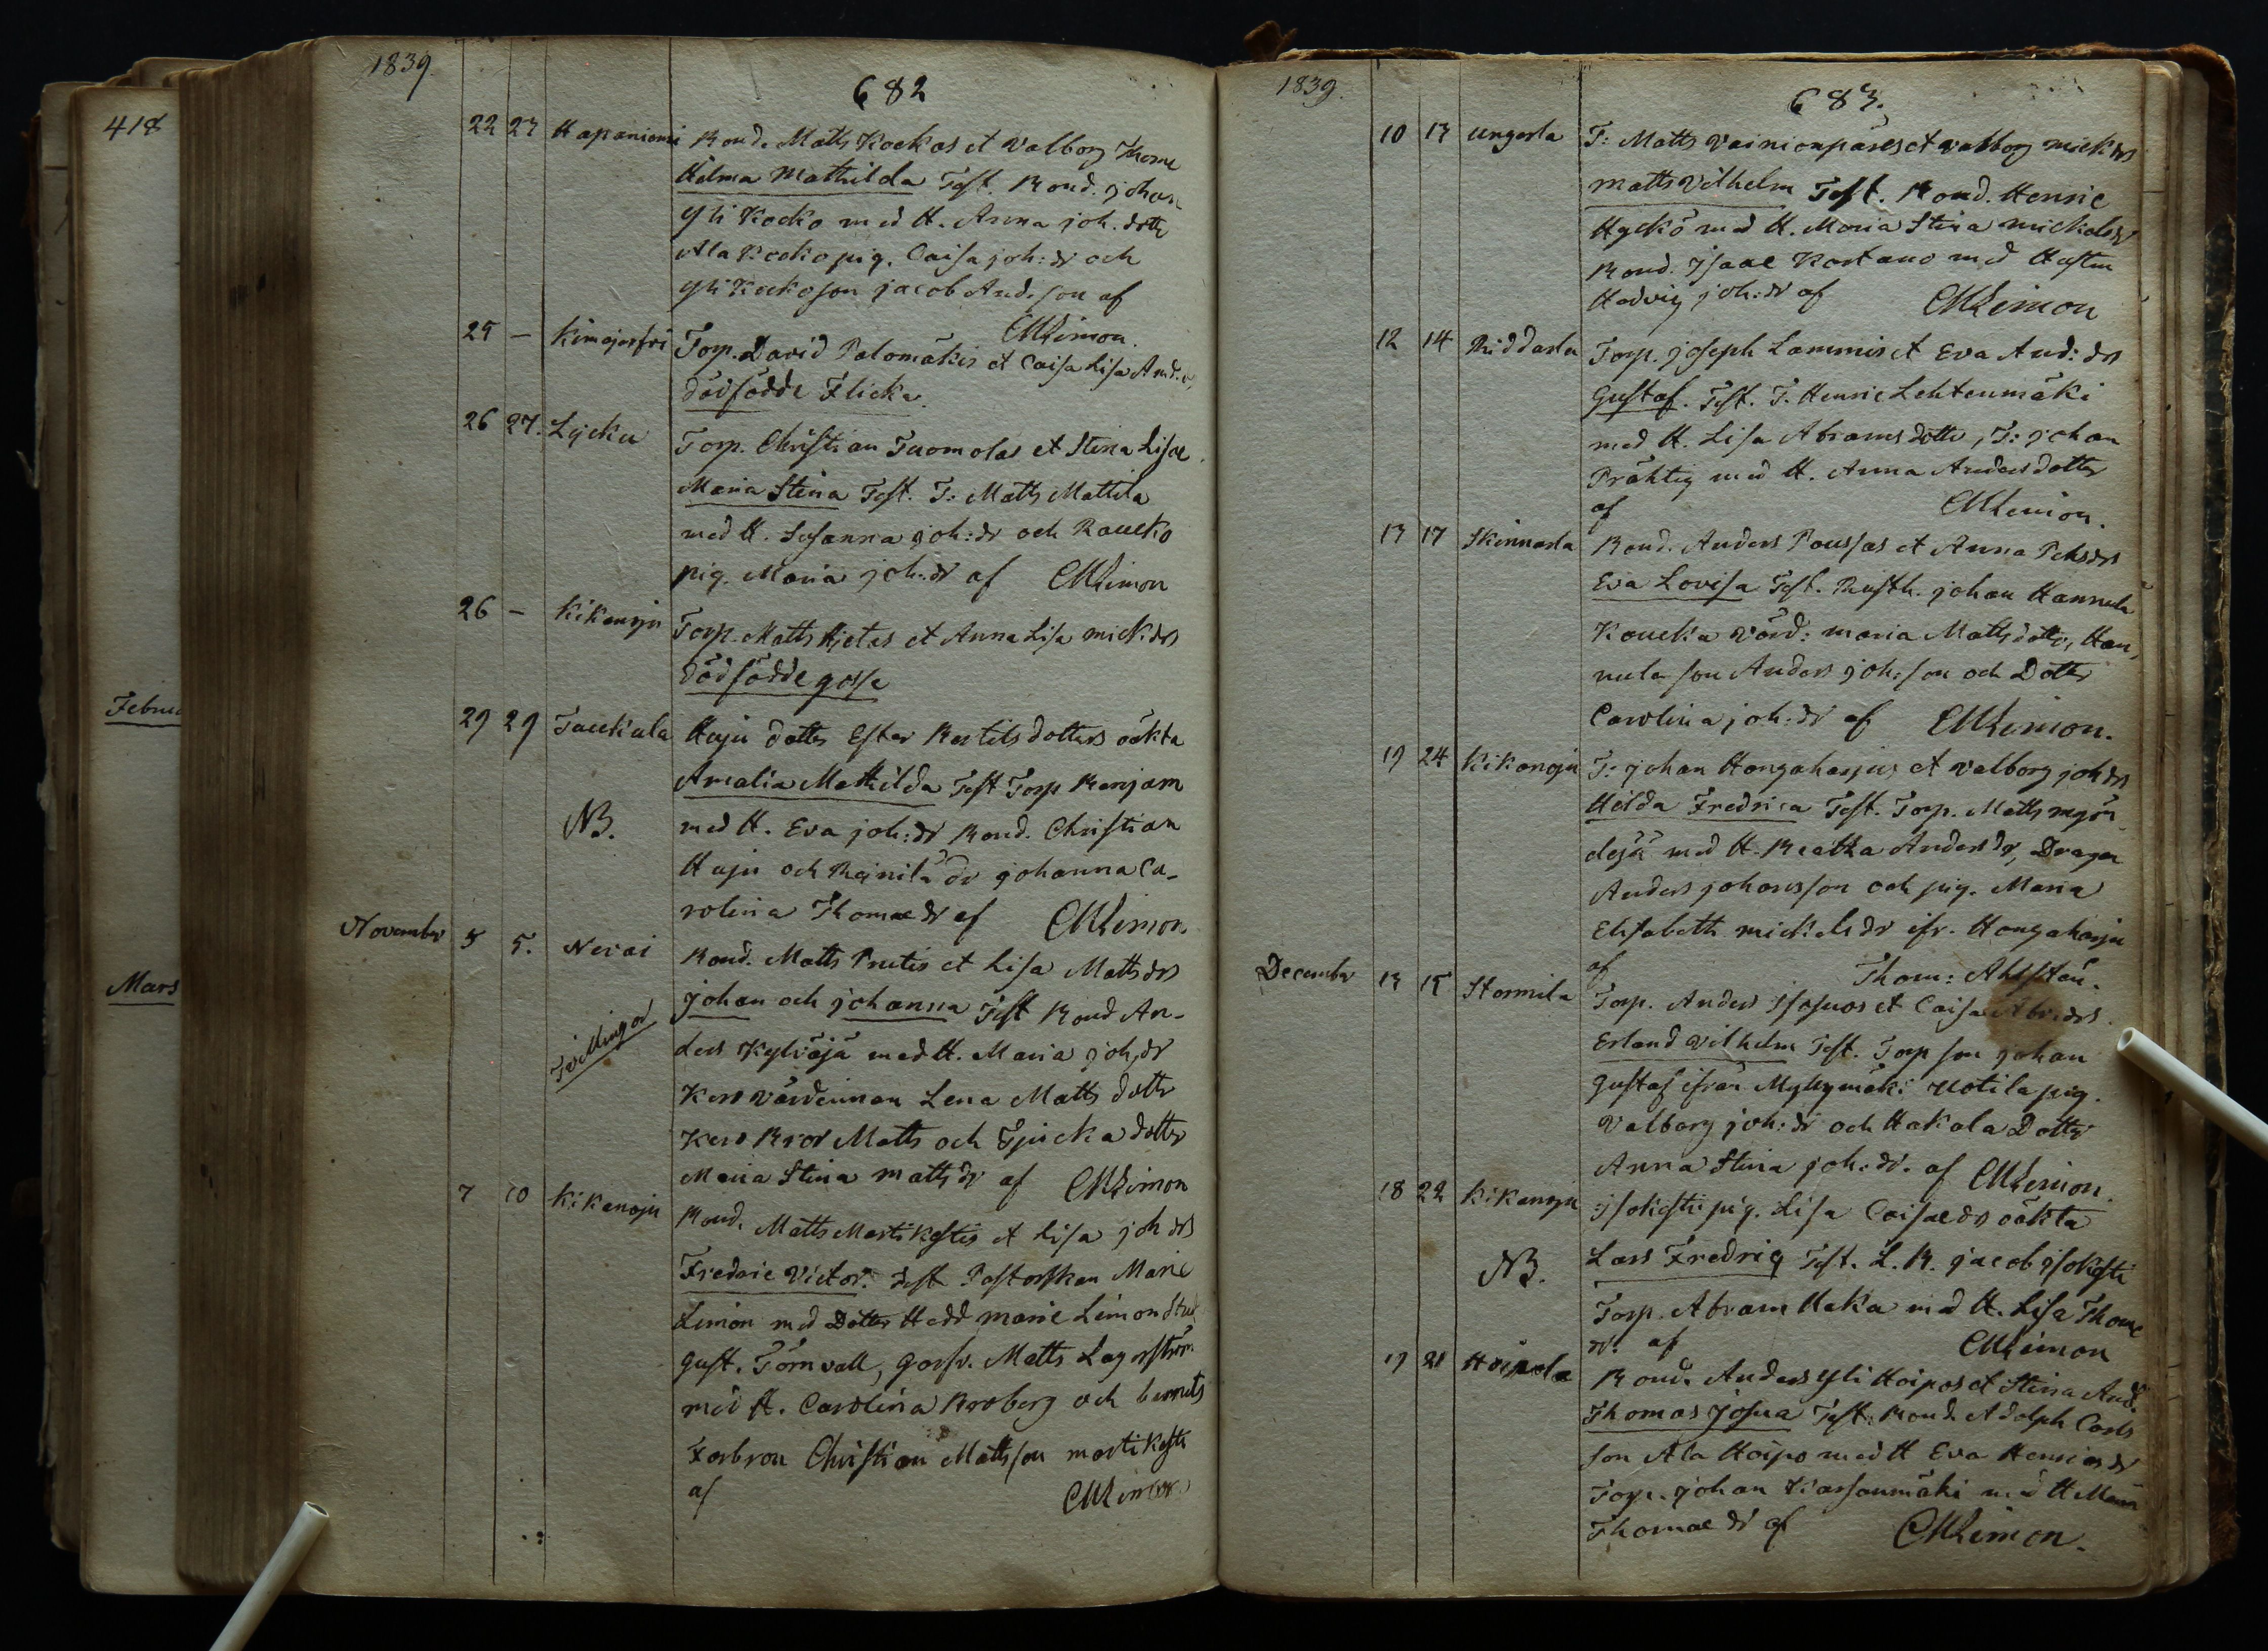 418
Februa
Mars
1839.
682
22 23 Hapaniemi Bond. Matts Kockos et Valborg Thome
Hilma Mathilda Test. Bond. johan
Yli Kocko med H. Anna joh. dotte
Ala Kocko pig. Caisa joh: dr och
Yli Kocko son jacob And. son af
CMLimon.
25 — Kimejerfvi Torp. David Palomäkis et Caisa Lisa And.
dödfödde Flicka.
26 27. Lycku Torp. Christian Tuomolas et Stina Lisae
Maria Stina Test. T: Matts Mattila
med H. Susanna joh: dr och Raucko
pig. Maria joh: dr af CMLimon
26 — Kikanoju Torp. Matts Hjetas et Anna Lisa mick: drs
dödfödde gosse
29 29 Tauckula Haju dotter Ester Bertilsdotters oäkta
Amalia Mathilda Test Torp Benjam
NB. med H. Eva joh: dr Bond. Christian
Haju och Reinilä dr johanna Ca-
rolina Thomae dr af CMLimon.
November 3 5. Nevoi Bond. Matts Prutis et Lisa Matts drs
johan och johanna Test Bond An-
Tvillingar ders Kylväjä med H. Maria joh, dr
Kero värdinnan Lena Matts dottr
Kero Bror Matts och Tjucka dotter
Maria Stina matts dr af CMLimon
7 10 Kikanoju Bond. Matts Martikestis et Lisa joh drs
Fredric Victor. Test Pastorskan Marie
Limon med Dotter Hedd marie Limon Stud
Gust. Törnvall, Garfv. Matts Lagerström
med H. Carolina Broberg och barnets
Farbron Christian Mattsson martikesti
af CMLimon
1839.
683.
10 13 Ungarla T: Matts Vainionpääs et valborg mick drs
matts Vilhelm Test. Bond. Henric
Hyckö med H. Maria Stina mickels dr
Bond. Isaac Kortano med Hustru
Hedvig joh: dr af CMLimon
12 14 Riddarla Torp. joseph Lammis et Eva And: drs
Gustaf. Test. T. Henric Lehtenmäki
med H. Lisa Abramsdotter, T: johan
Präktig med H. Anna Andersdotter
af CMLimon.
13 17 Skinnarla Bond. Anders Poussas et Anna Pehrs drs
Eva Lovisa Test. Rusth. johan Hannula
Koucka värd: maria Mattsdotter, Han,
nula son Anders joh: son och Dotter
Carolina joh: dr af CMLimon.
19 24 Kikanoju T: johan Hongaharjus et valborg joh drs
Hilda Fredrica Test. Torp. Matts
med H. Beatha Anders dr, Dragon
Anders johansson och pig. Maria
Elisabeth mickels dr ifr. Hongaharju
af Thom: Ahlstän.
December 13 15 Stormila Torp. Anders Isosuos et Caisa Abr: drs.
Erland Vilhelm Test. Torp son johan
Gustaf ifrån Myllymäki Uotila pig.
Valborg joh: dr och Hakala Dotter
Anna Stina joh: dr. af CMLimon.
18 22 Kikanoju Isokesti pig. Lisa Caisae dr oäkta
NB. Lars Fredrig Test. L. B. jacob Isokesti
Torp. Abram Haka med H. Lisa Thome
dr. af CMLimon
19 21 Hoipola Bond. Anders Yli Hoipos et Stina And.
Thomas Josua Test: Bond. Adolph Carls
son Ala Hoipo med H Eva Henrics dr
Torp. johan Karsanmäki med H Maria
Thomae dr af CMLimon.